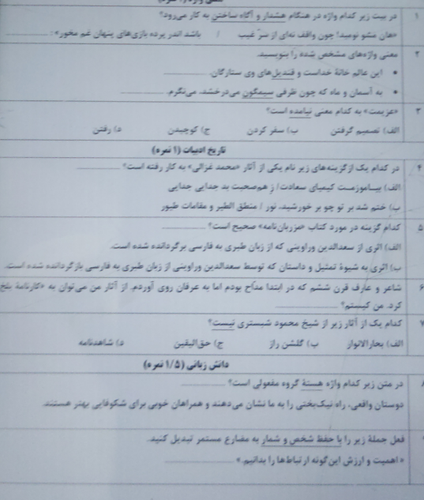 ۱ در بیت زیر کدام واژه در هنگام هشدار و آگاه ساختن به کار می‌رود؟
«هان مشو نومید! چون واقف نه‌ای از سرّ غیب / باشد اندر پرده بازی‌های پنهان غم مخور» ..........
۲ معنی واژه‌های مشخص شده را بنویسید.
• این عالم خانهٔ خداست و قندیل‌های وی ستارگان. ..........
• به آسمان و ماه که چون ظرفی سیمگون می‌درخشد، می‌نگرم. ..........
۳ «عزیمت» به کدام معنی نیامده است؟
الف) تصمیم گرفتن ب) سفر کردن ج) کوچیدن د) رفتن
تاریخ ادبیات (۱ نمره)
۴ در کدام یک از گزینه‌های زیر نام یکی از آثار «محمد غزالی» به کار رفته است؟ ..........
الف) بیاموزمت کیمیای سعادت/ ز هم‌صحبت بد جدایی جدایی
ب) ختم شد بر تو چو بر خورشید، نور / منطق الطیر و مقامات طیور
۵ کدام گزینه در مورد کتاب «مرزبان‌نامه» صحیح است؟
الف) اثری از سعدالدین وراوینی که از زبان طبری به فارسی برگردانده شده است.
ب) اثری به شیوهٔ تمثیل و داستان که توسط سعدالدین وراوینی از زبان طبری به فارسی بازگردانده شده است.
۶ شاعر و عارف قرن ششم که در ابتدا مدّاح بودم اما به عرفان روی آوردم. از آثار من می‌توان به «کارنامهٔ بلخ
کرد. من کیستم؟ ..........
۷ کدام یک از آثار زیر از شیخ محمود شبستری نیست؟
الف) بحارالانوار ب) گلشن راز ج) حق‌الیقین د) شاهدنامه
دانش زبانی (۱/۵ نمره)
۸ در متن زیر کدام واژه هستهٔ گروه مفعولی است؟
دوستان واقعی، راه نیک‌بختی را به ما نشان می‌دهند و همراهان خوبی برای شکوفایی بهتر هستند.
فعل جملهٔ زیر را با حفظ شخص و شمار به مضارع مستمر تبدیل کنید.
«اهمیت و ارزش این‌گونه ارتباط‌ها را بدانیم.» ..........